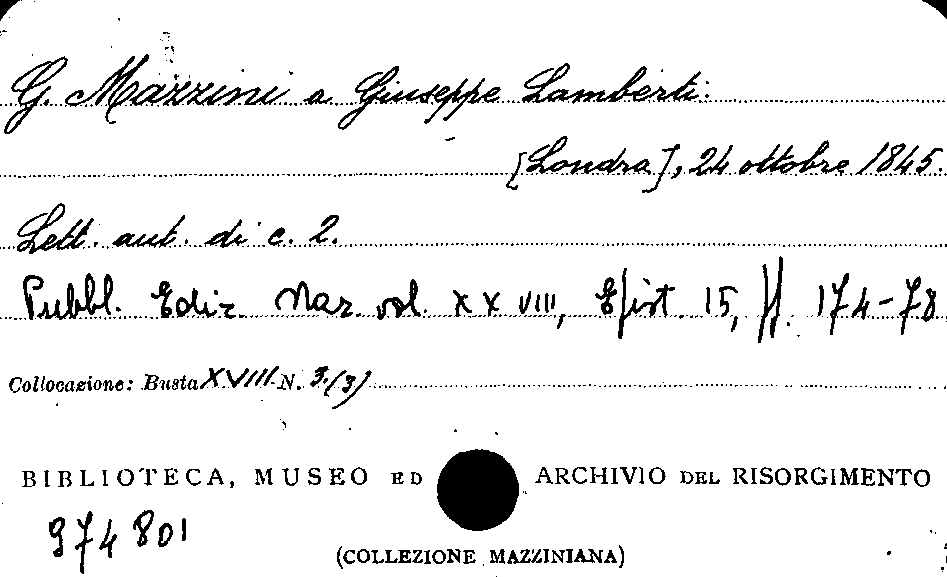 G. Mazzini a Giuseppe Lamberti.
[Londra], 24 ottobre 1845.
Lett. aut. di c. 2.
Pubbl. Ediz. Naz. vol. XXVIII, Epist. 15, pp. 174-78
Collocazione: Busta XVIII N. 3.(3)
BIBLIOTECA, MUSEO ED ARCHIVIO DEL RISORGIMENTO
974801
(COLLEZIONE MAZZINIANA)